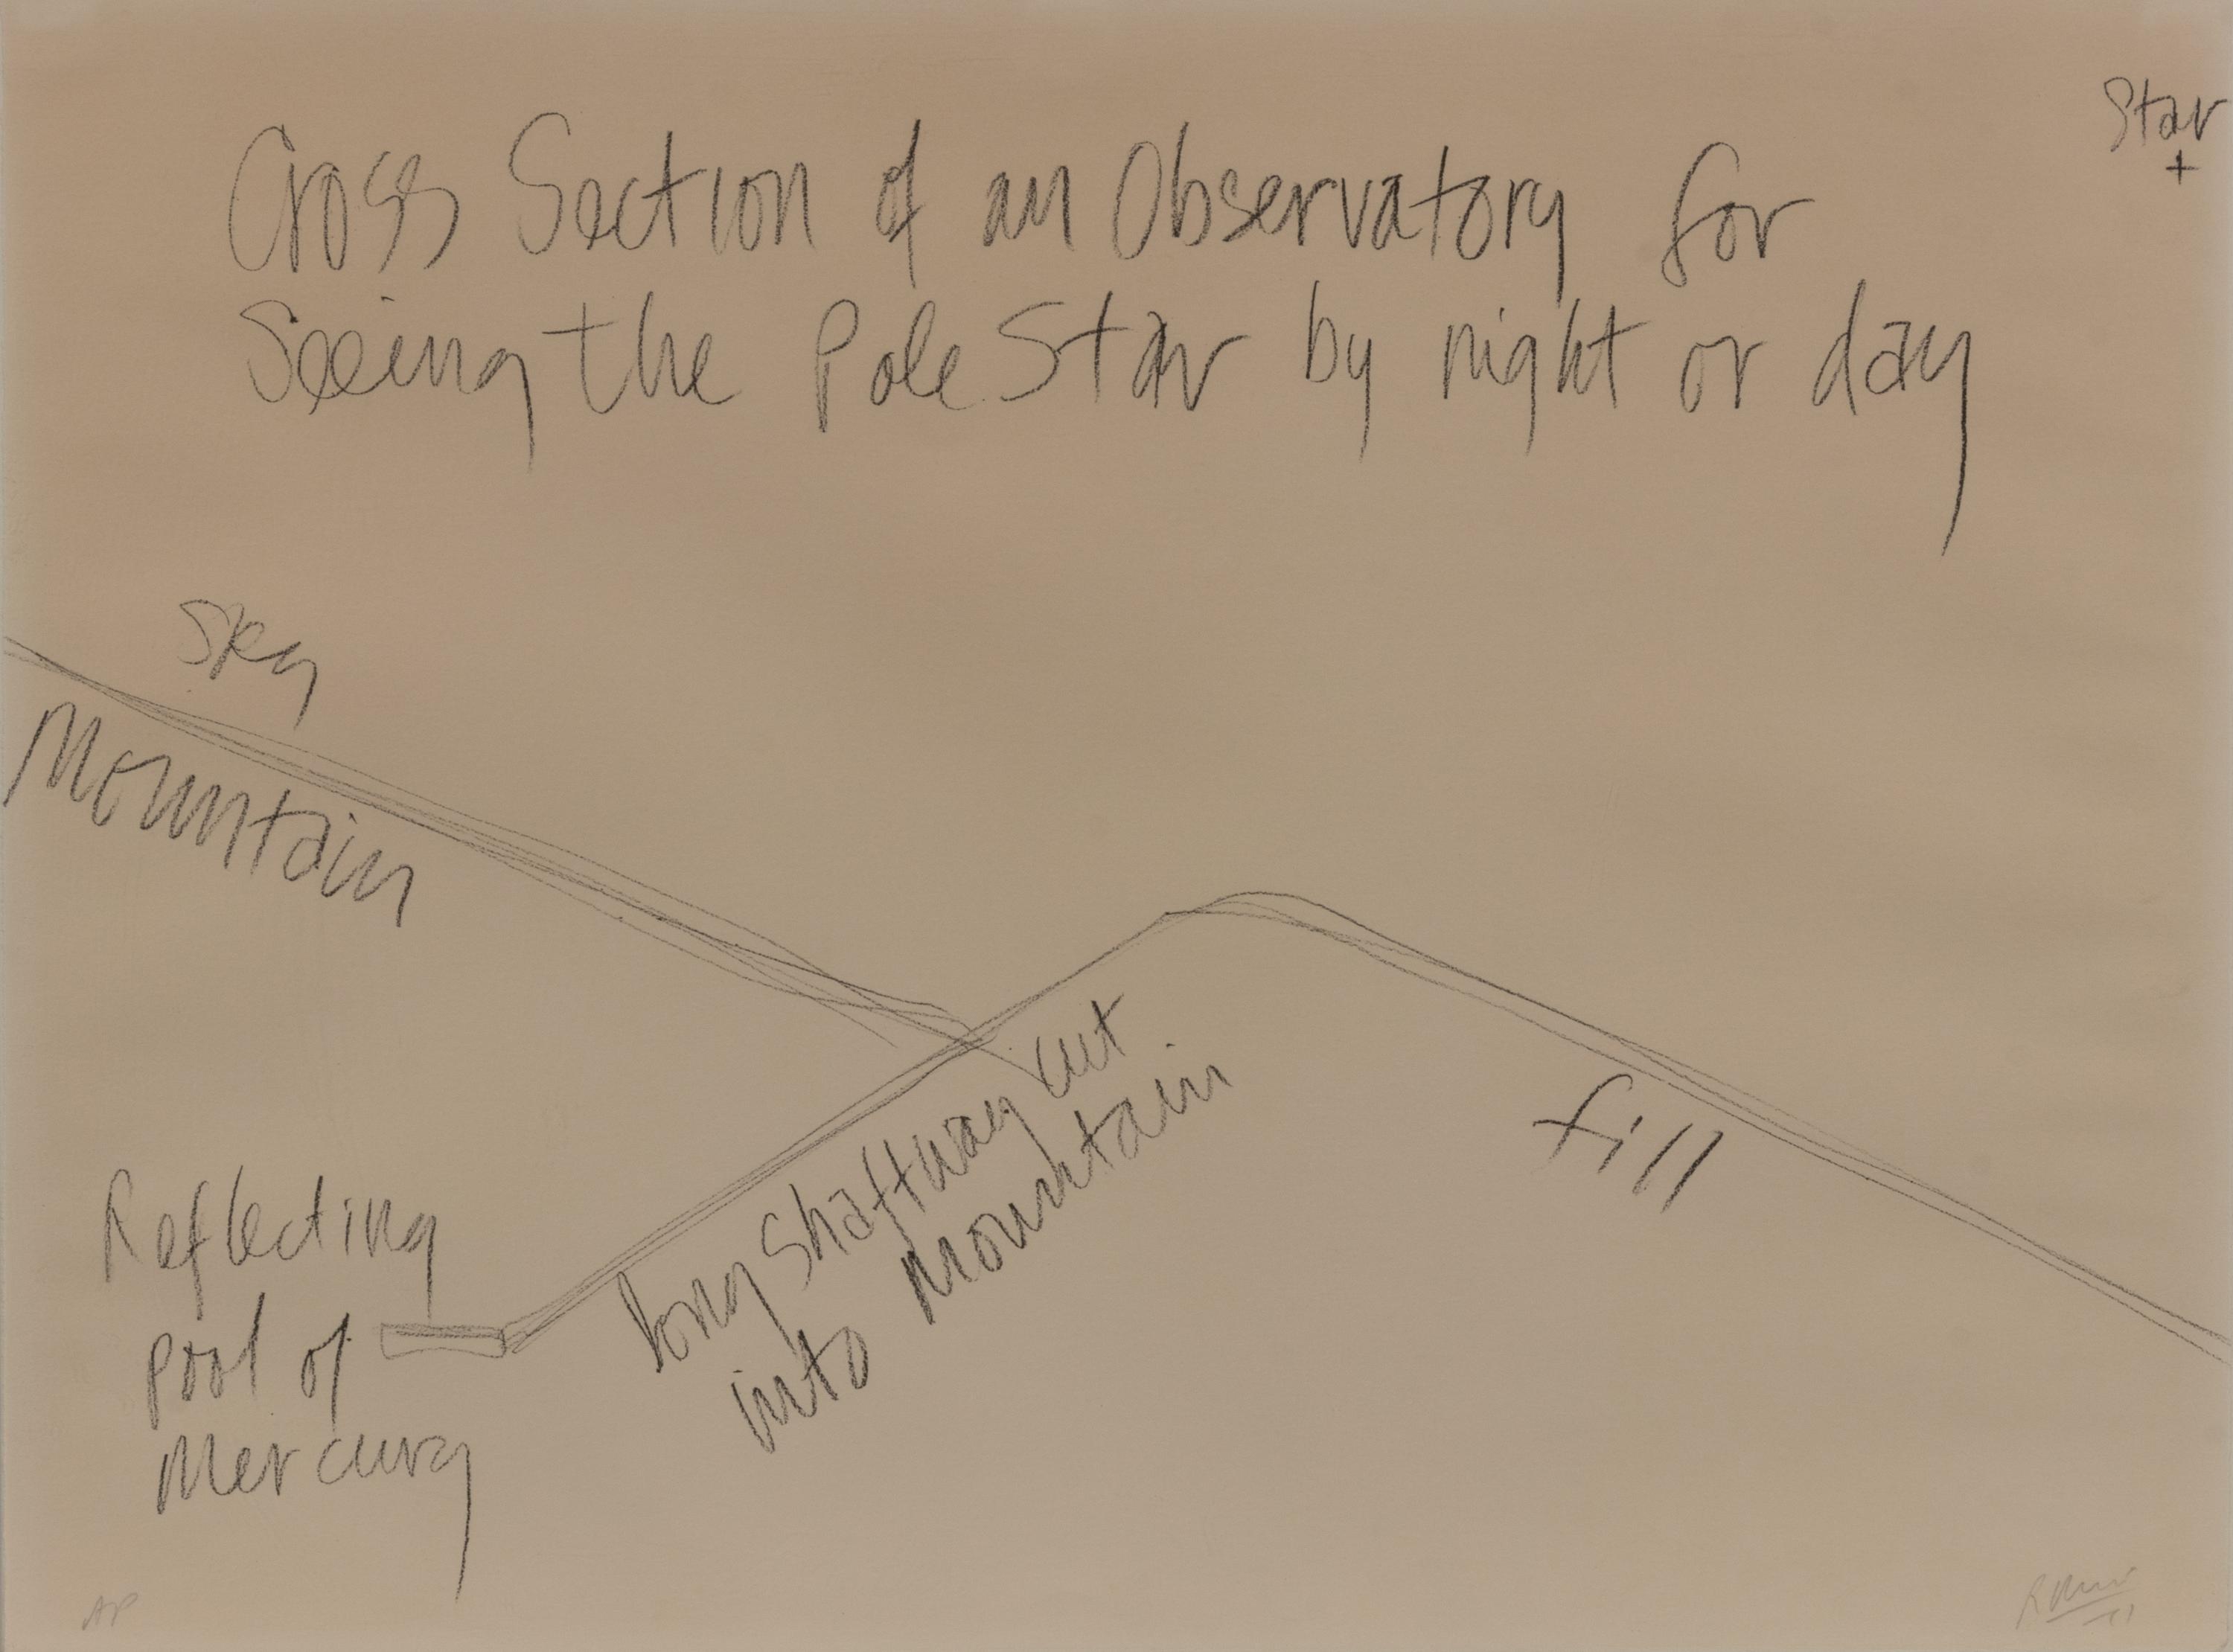 Star
+
Cross Section of an Observatory for
Seeing the Pole Star by night or day
Sky
Mountain
fill
long shaftway cut
into mountain
Reflecting
pool of
Mercury
AP